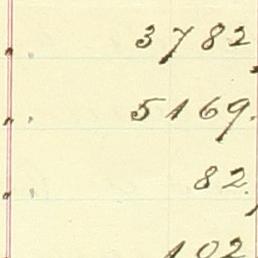 3782
5169.
82.
102